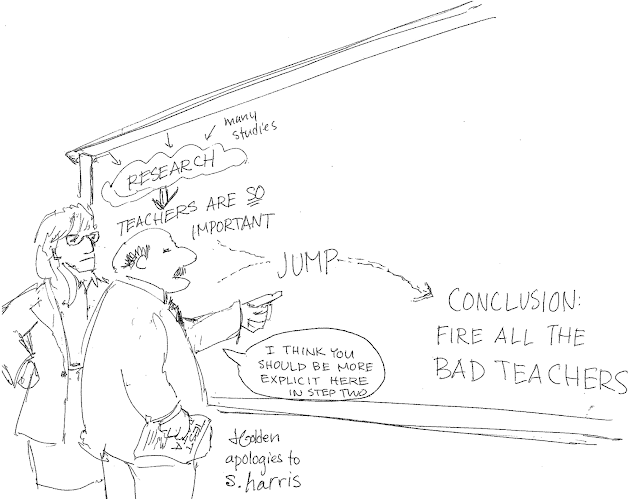 many
studies
RESEARCH
TEACHERS ARE SO
IMPORTANT
JUMP
CONCLUSION:
FIRE ALL THE
BAD TEACHERS
I THINK YOU
SHOULD BE MORE
EXPLICIT HERE
IN STEP TWO
JGolden
apologies to
s. harris